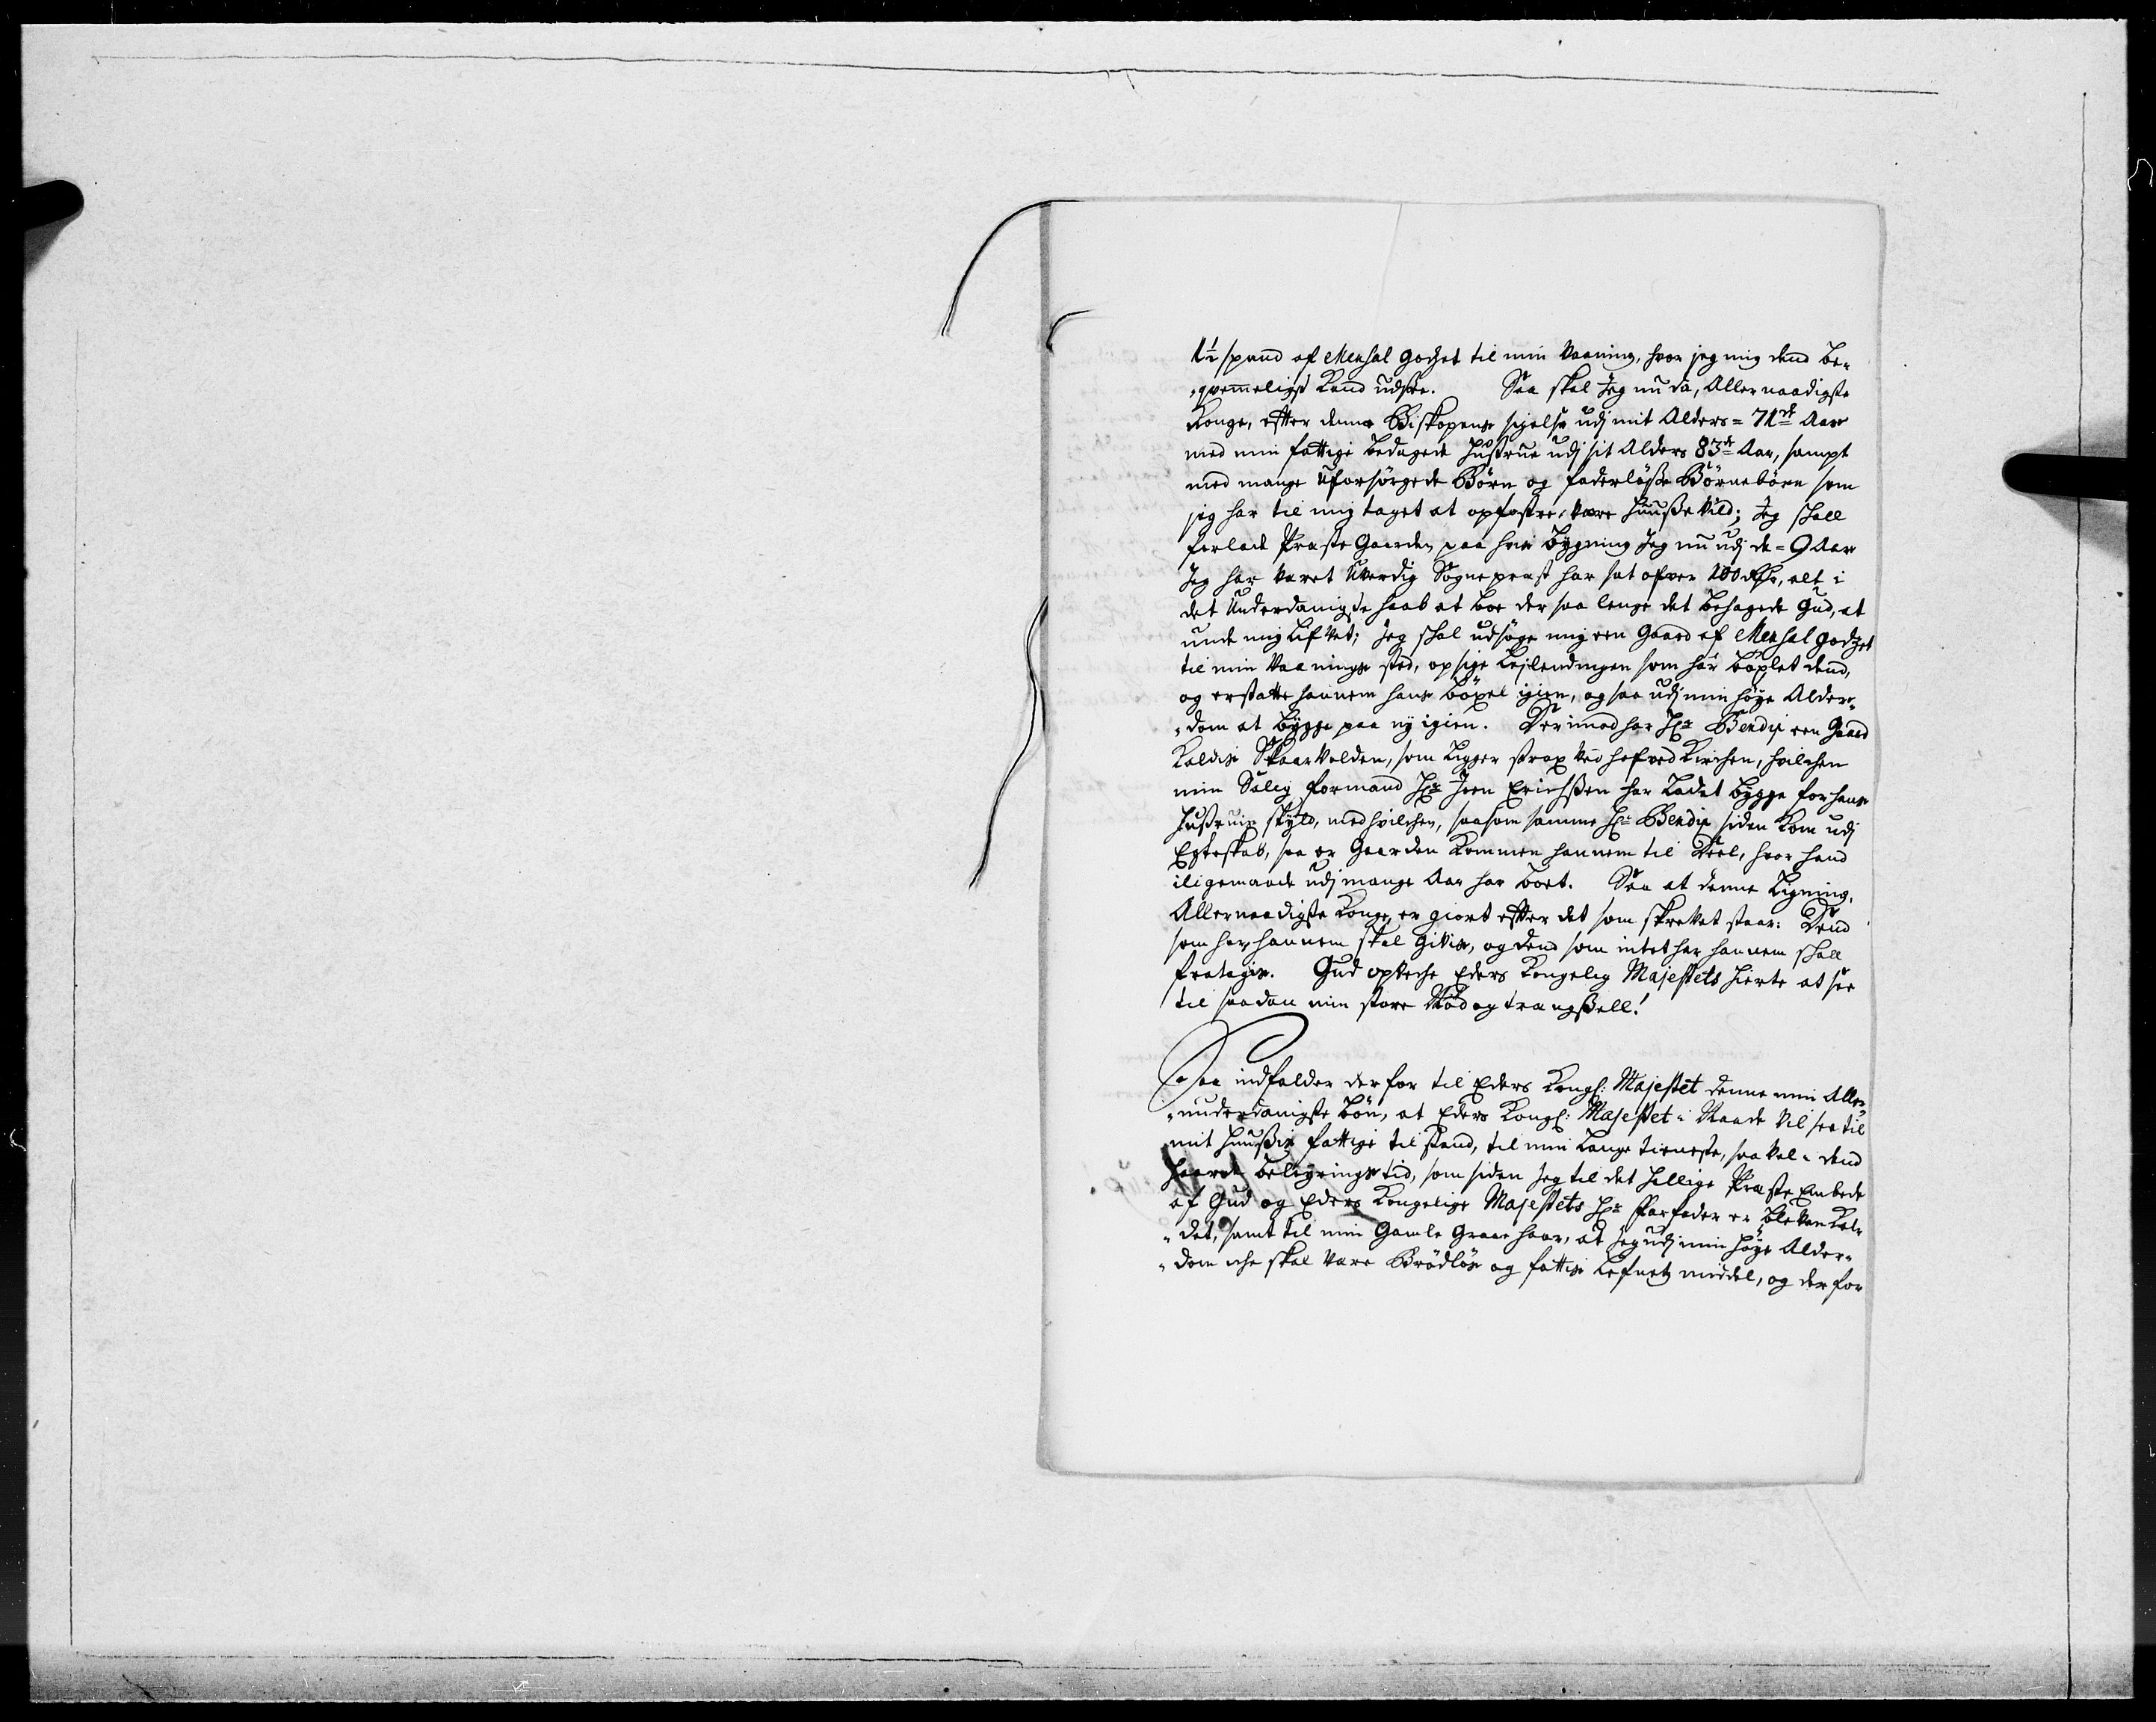 1½ spand af Mensal godzet til min Vaaning, hvor jeg mig dend be-
"qvemmeligst Kand udsee. Saa skal Jeg nu da, Allernaadigste
Konge, effter denne Biskopens sigelse udj mit Alders = 71de Aar
med min fattige bedagede Hustrue udj sit Alders 83de Aar, sampt
med mange Uforsörgede Börn og faderlöße Börnebörn som
jeg har til mig taget at opfostre, være Huuße Vild; Jeg skall
forlade Præste Gaarden paa hvis Bygning Jeg nu udj de = 9 Aar
Jeg har Været Uværdig Sognepræst har sat ofver 100 Rdr, alt i
det Underdanigste haab at boe der saa lenge det behagede Gud, at
unde mig Lifvet; Jeg skal udsöge mig een Gaard af Mensal godzet
til min Vaanings sted, opsige Lejlendingen som har böxlet dend,
og erstatte hannem hans böxel igien, og saa udj min höye Alder-
"dom at bygge paa ny igien. Derimod har Hr Bendix een Gaard
Kaldis Skaarvolden, som Ligger strax ved hofved Kirchen, hvilchen
min Salig formand Hr Joen Erichßen har Ladet bygge for hans
Hustruis skyld, med hvilchen, saasom samme Hr Bendix siden kom udj
Egteskab, saa er Gaarden Kommen hannem til Deel, hvor hand
iligemaade udj mange Aar har boet. Saa at denne Ligning,
Allernaadigste Konge, er giort effter det som skrevet staar: Dend
som har, hannem skal givis, og dend som intet har, hannem skall
fratagis. Gud opveche Eders Kongelig Majestets Hierte at see
til saadan min store Nöd og trangßell!
Saa indfalder der for til Eders Kongl: Majestet denne min Aller-
"underdanigste bön, at Eders Kongl: Majestet i Naade Vil see til
mit Huußis fattige tilstand, til min Lange tieneste, saa Vel i dend
haarde beleyrings tid, som siden Jeg til det Hellige Præste Embede
af Gud og Eders Kongelige Majestets Hr Farfader er blevен Kal-
"det, samt til min Gamle Graae haar, at Jeg udj min höye Alder-
"dom iche skal være Brödlös og fattis Lefnetz middel, og der for